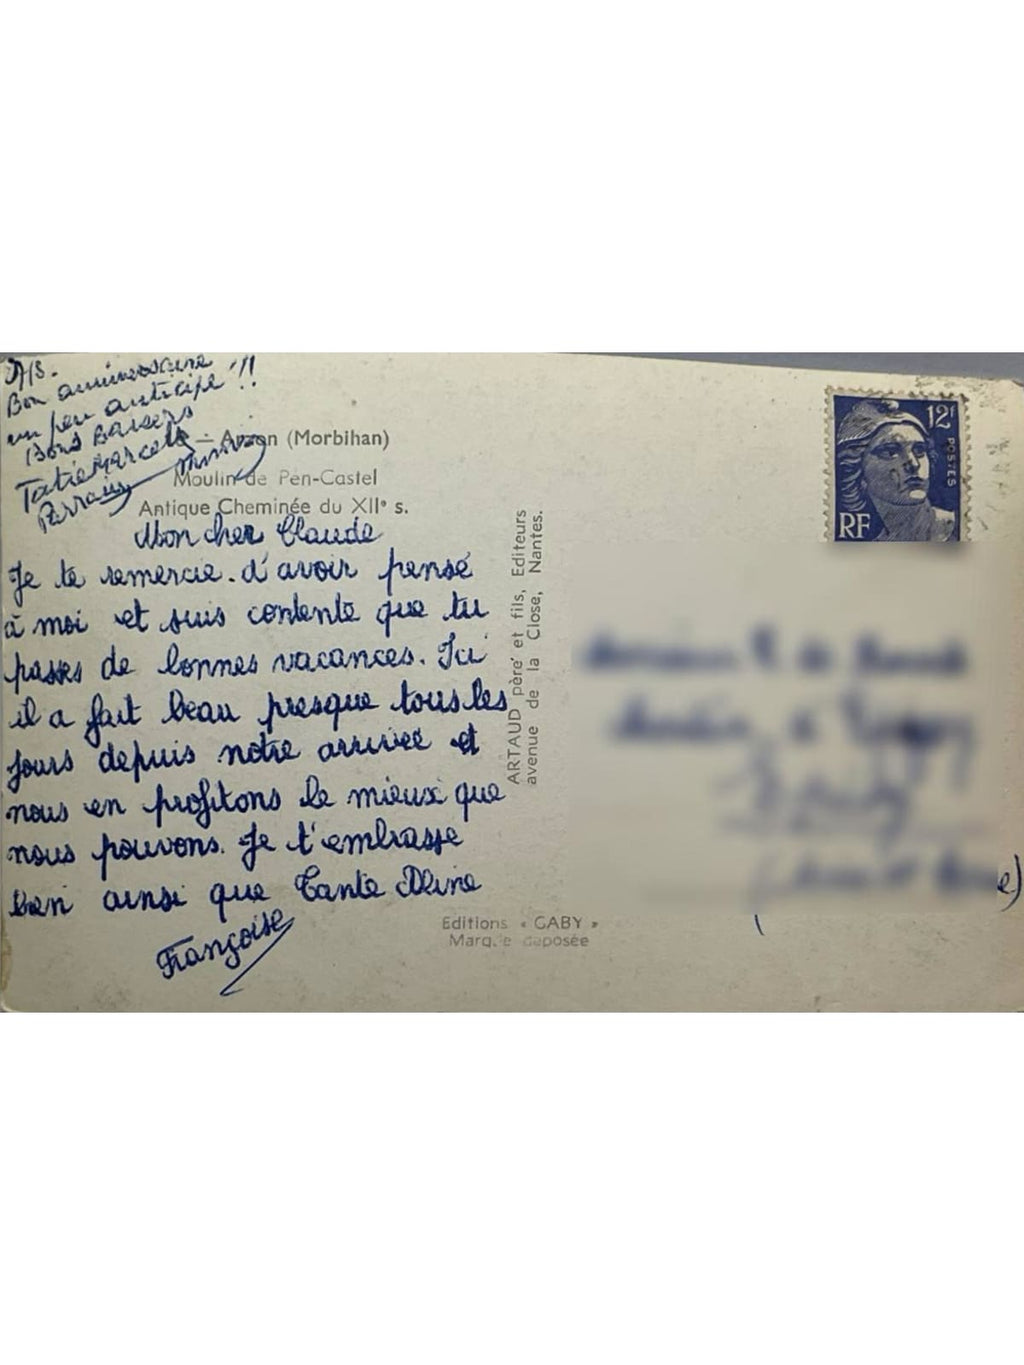 Bon anniversaire
un peu anticipé !!
Bons Baisers
Tatie Marcelle
Parrain
– Arzon (Morbihan)
Moulin de Pen-Castel
Antique Cheminée du XIIᵉ s.
Mon cher Claude
Je te remercie d'avoir pensé
à moi et suis contente que tu
passes de bonnes vacances. Ici
il a fait beau presque tous les
jours depuis notre arrivée et
nous en profitons le mieux que
nous pouvons. Je t'embrasse
bien ainsi que Tante Aline
Françoise
ARTAUD père et fils, Editeurs
avenue de la Close, Nantes.
Editions « GABY »
Marque déposée
12f
POSTES
RF